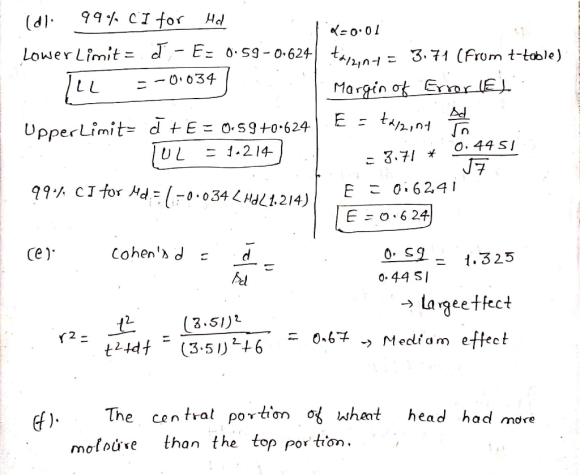 (d). 99% CI for μd
Lower Limit = d̄ - E = 0.59-0.624
LL = -0.034
Upper Limit = d̄ + E = 0.59+0.624
UL = 1.214
99% CI for μd = (-0.034 < μd < 1.214)
α=0.01
tα/2,n-1 = 3.71 (From t-table)
Margin of Error (E)
E = tα/2,n-1 sd/√n
= 3.71 * 0.4451/√7
E = 0.6241
E = 0.624
(e). Cohen's d = d̄/sd = 0.59/0.4451 = 1.325
→ Large effect
r2 = t2/t2+df = (3.51)2/(3.51)2+6 = 0.67 → Mediam effect
(f). The central portion of wheat head had more
moisture than the top portion.